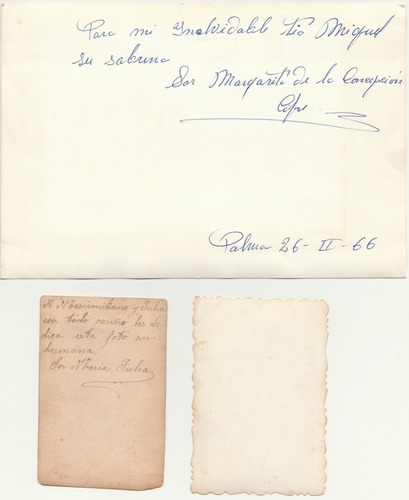 Para mi Inolvidable tio Miguel
su sobrina
Sor Margarita de la Concepción
Palma 26-II-66
A Maximiliano y Julia
con todo cariño les de
dica esta foto su
hermana
Sor Maria Julia